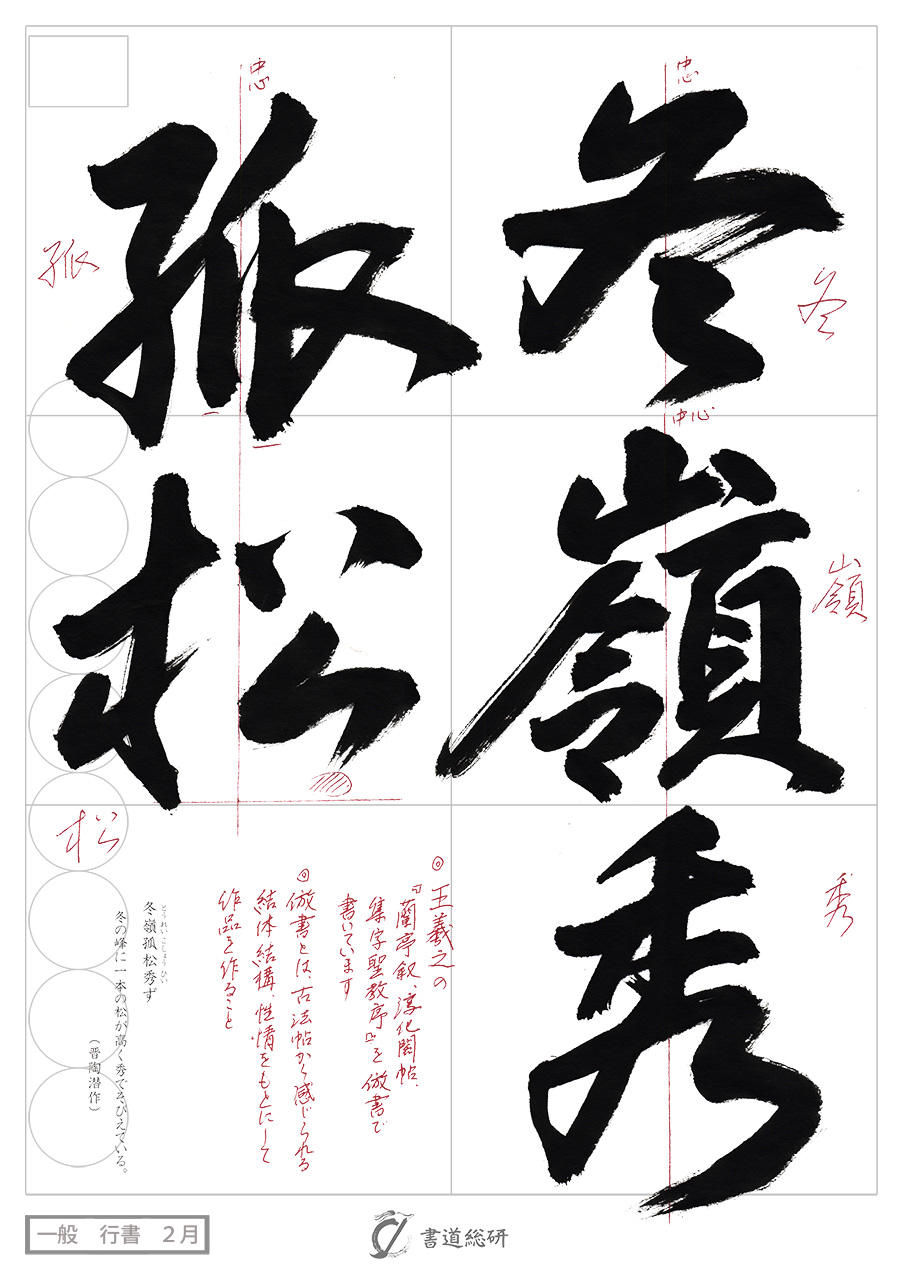 冬嶺秀
孤松
忠
忠
中心
冬
嶺
秀
孤
松
◎王羲之の
『蘭亭叙、淳化閣帖、
集字聖教序』を倣書で
書いています
◎倣書とは、古法帖から感じられる
結体結構、性情をもとにして
作品を作ること
とうれいこしょうひい
冬嶺孤松秀ず
冬の峰に一本の松が高く秀でそびえている。
（晋陶潜作）
一般　行書　２月
書道総研